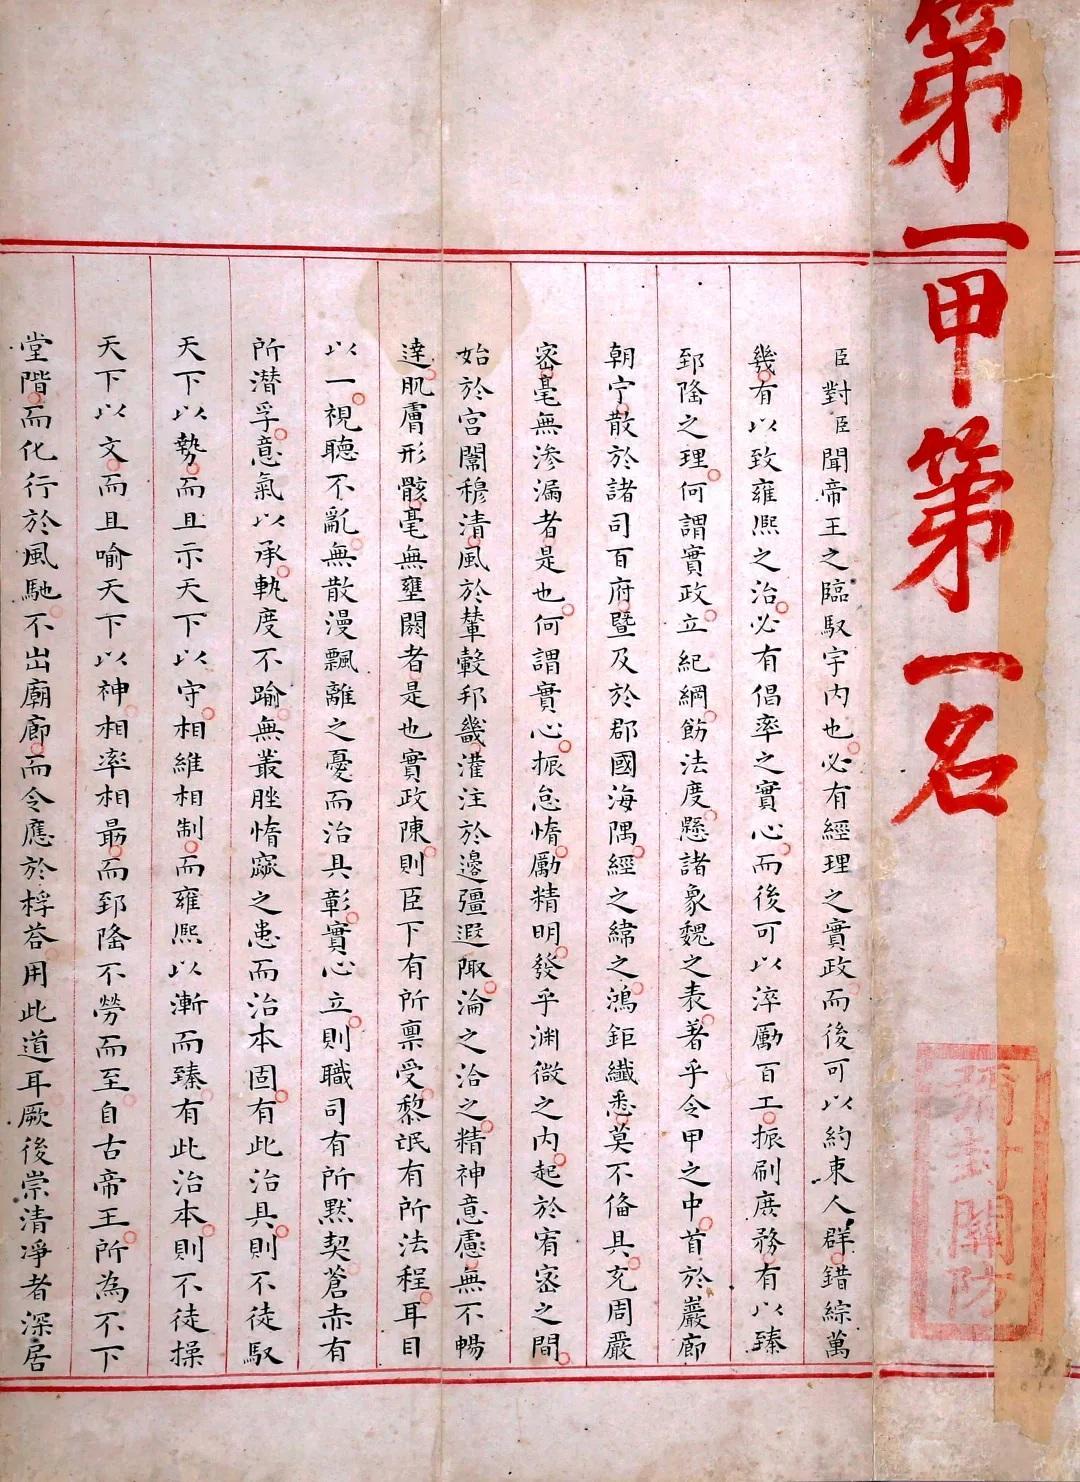 第一甲第一名
彌封關防
臣對臣聞帝王之臨馭宇内也必有經理之實政而後可以約束人群錯綜萬
幾有以致雍熙之治必有倡率之實心而後可以淬勵百工振刷庶務有以臻
郅隆之理何謂實政立紀綱飭法度懸諸象魏之表著乎令甲之中首於巖廊
朝宁散於諸司百府暨及於郡國海隅經之緯之鴻鉅纖悉莫不備具充周嚴
密毫無滲漏者是也何謂實心振怠惰勵精明發乎渊微之内起於宥密之間
始於宫闈穆清風於輦轂邦畿灌注於邊疆遐陬淪之洽之精神意慮無不暢
達肌膚形骸毫無壅閼者是也實政陳則臣下有所禀受黎氓有所法程耳目
以一視聽不亂無散漫飄離之憂而治具彰實心立則職司有所默契蒼赤有
所潛孚意氣以承軌度不踰無叢脞惰窳之患而治本固有此治具則不徒馭
天下以勢而且示天下以守相維相制而雍熙以漸而臻有此治本則不徒操
天下以文而且喻天下以神相率相朂而郅隆不勞而至自古帝王所為不下
堂階而化行於風馳不出廟廊而令應於桴荅用此道耳厥後崇清凈者深居